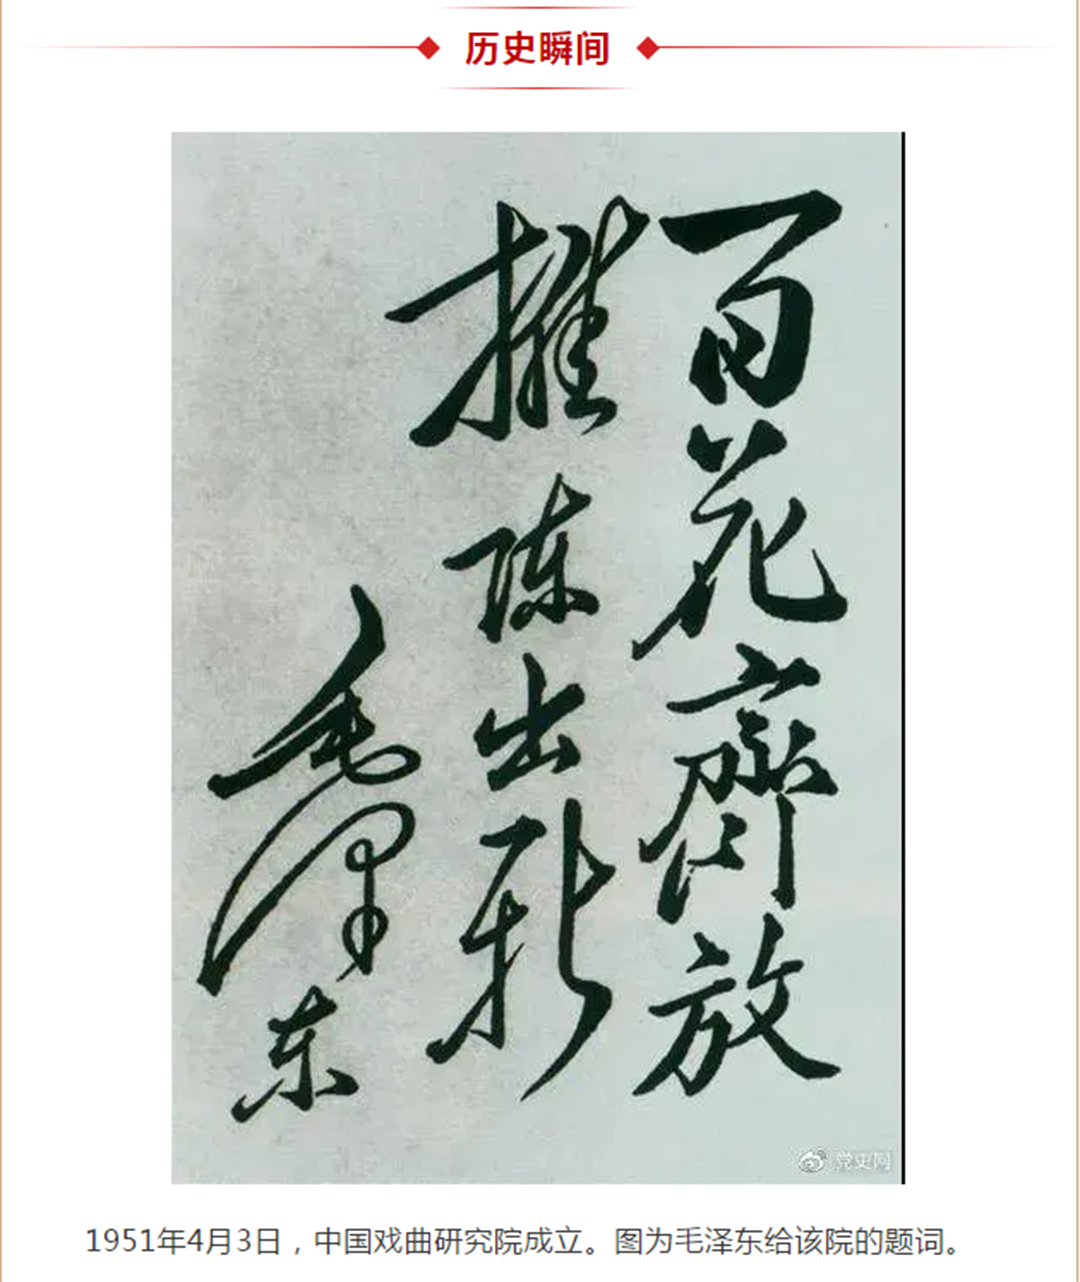 历史瞬间
百花齊放
推陈出新
毛泽东
党史网
1951年4月3日，中国戏曲研究院成立。图为毛泽东给该院的题词。